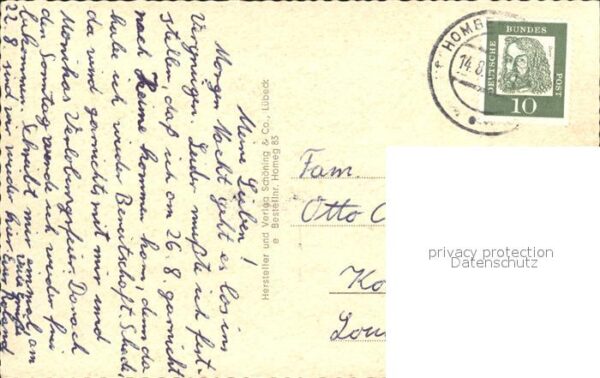 Meine Lieben!
Morgen Nacht geht es los ins
Vergnügen. Leider mußte ich fest-
stellen, daß ich am 26.8. garnicht
nach Heime kommen kann, denn da
habe ich wieder Bereitschaft. Schade,
da wird garnichts mit mir und
Monikas Verlobungsfeier. Danach
den Sonntag werde ich wieder frei
bekommen. Schreibt mir einmal, am
2.8. sind wir wieder hier. Euer Roland
Viele Grüße
Hersteller und Verlag Schöning & Co., Lübeck
e Bestellnr. Homeg 85
HOMB
14.8.
DEUTSCHE BUNDES POST
10
Fam.
Otto C
Ko
Lou
privacy protection
Datenschutz